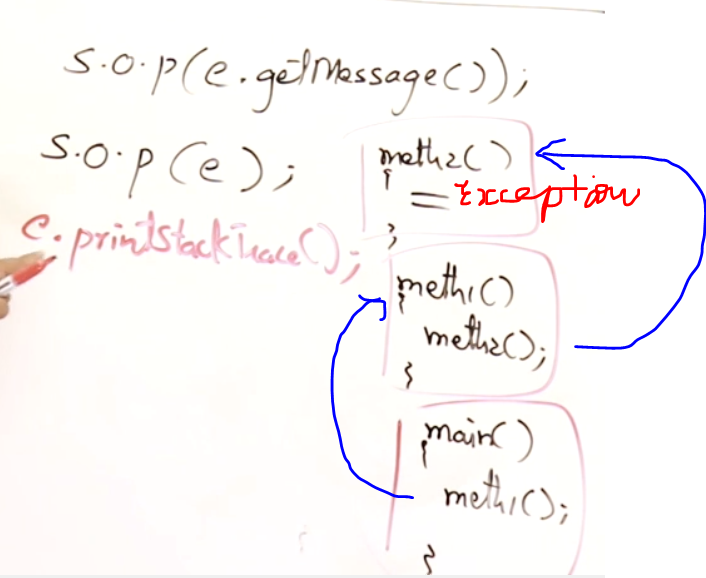 S.O.P(e.getMessage());
S.O.P(e);
e.printStackTrace();
meth2()
{
= Exception
}
meth1()
{
meth2();
}
main()
{
meth1();
}